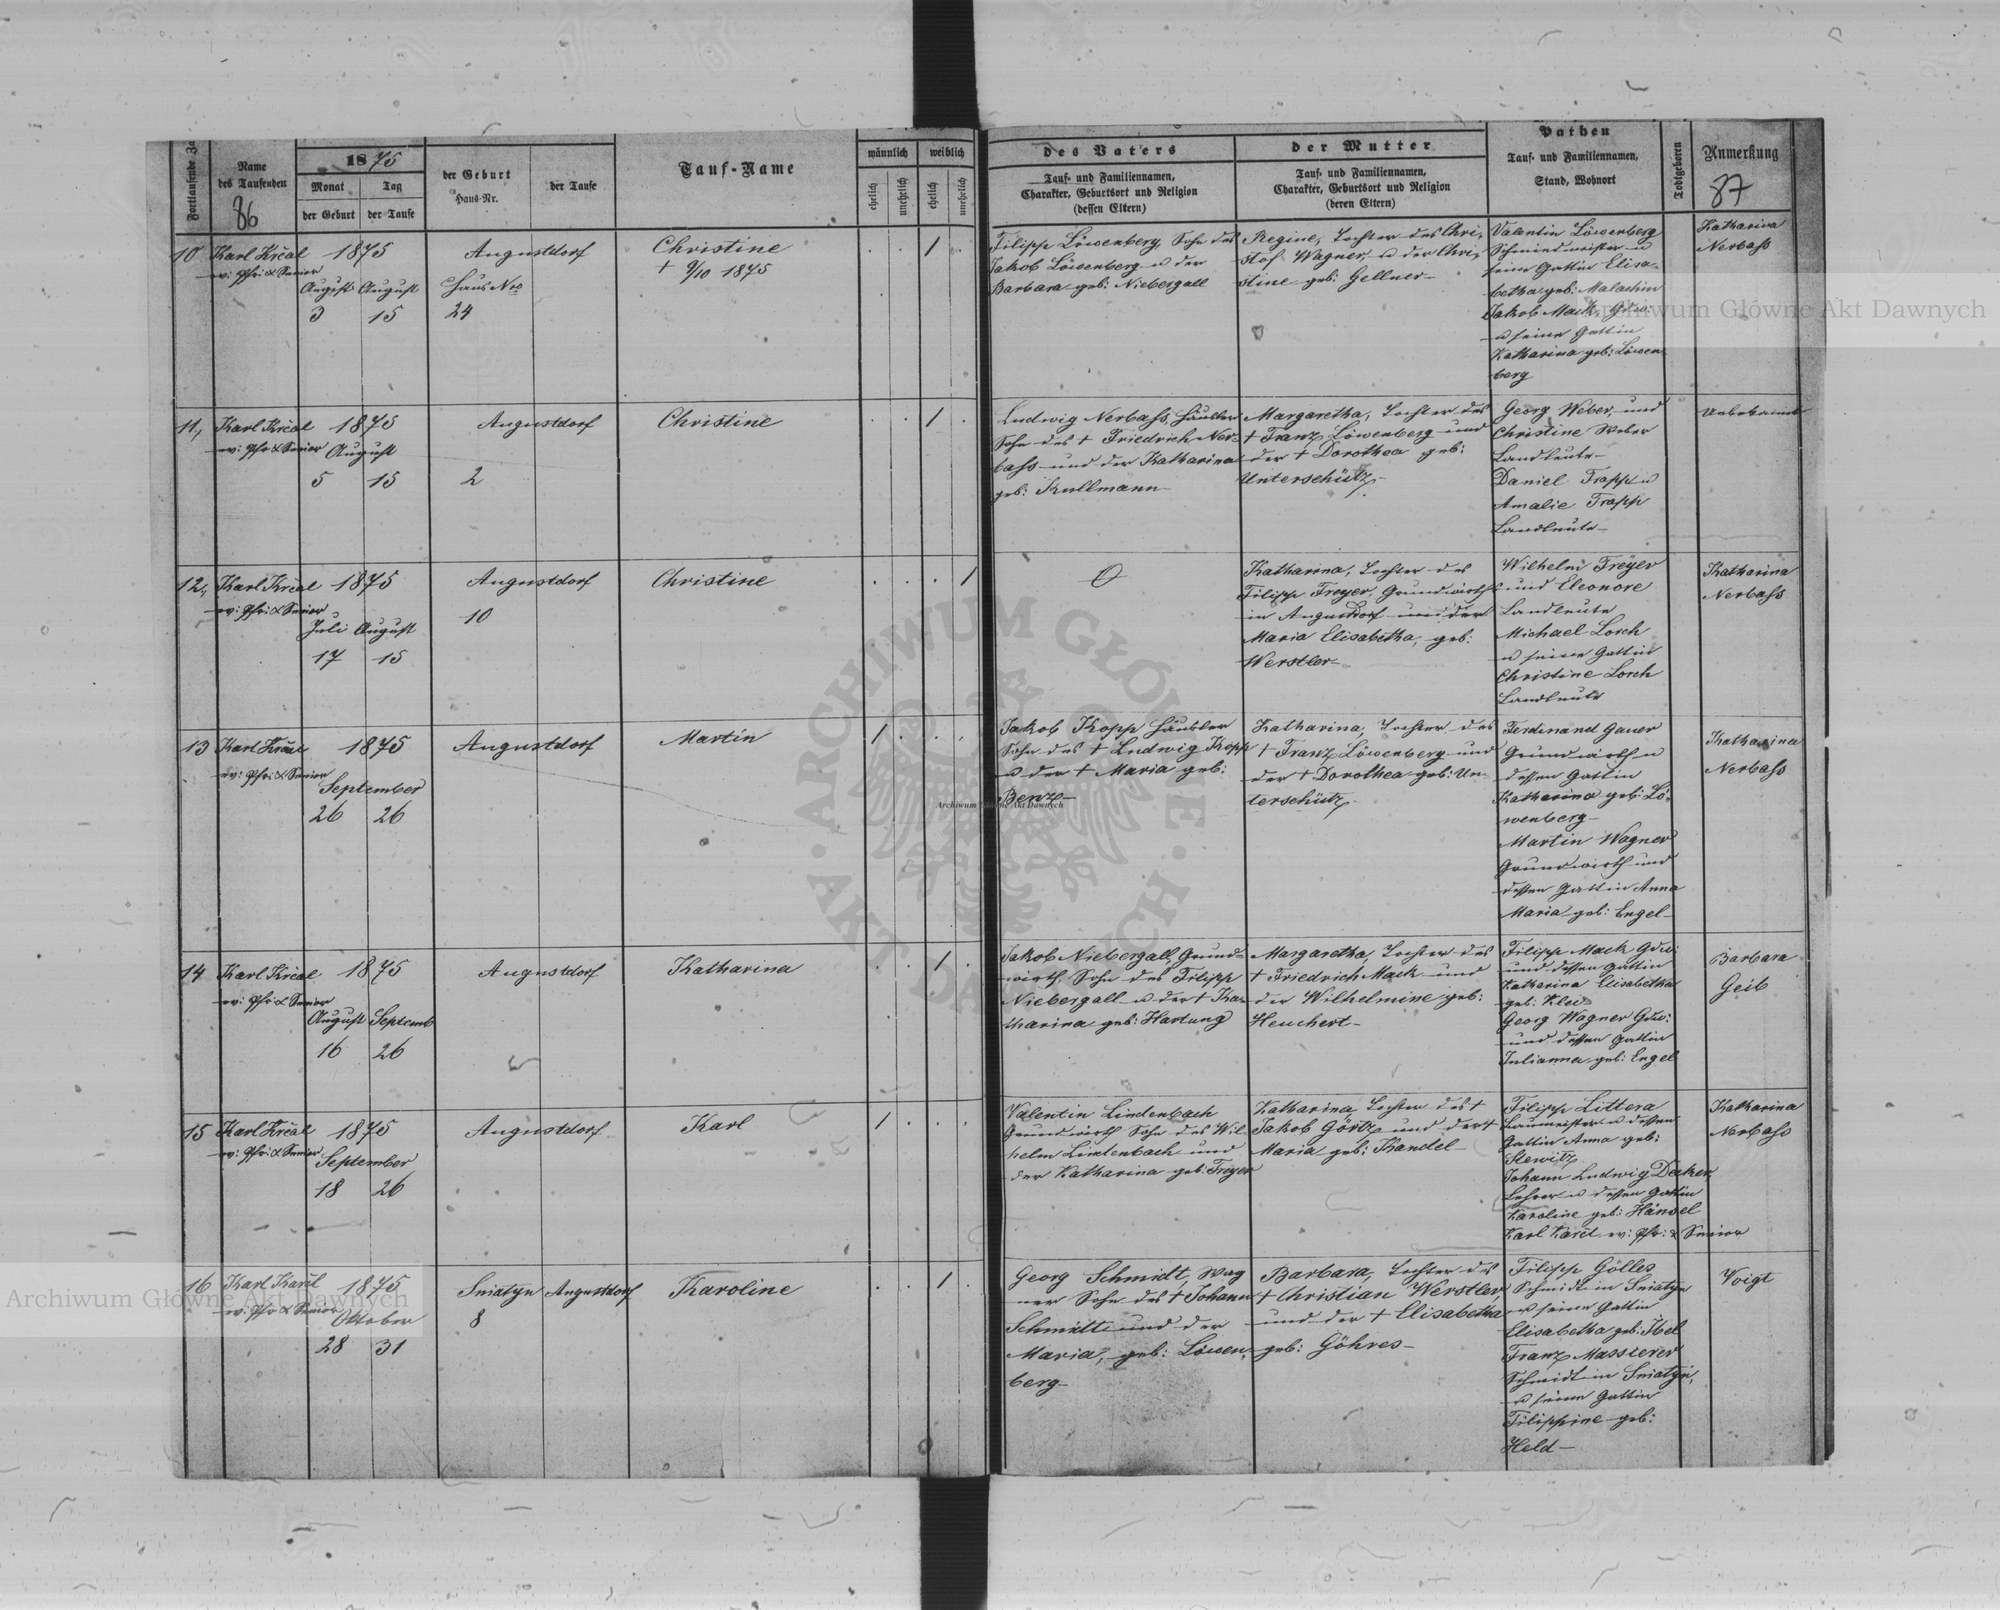 Fortlaufende Za
Name
des Taufenden
86
1875
Monat
Tag
der Geburt
der Taufe
der Geburt
Haus-Nr.
der Taufe
Tauf-Name
männlich
weiblich
ehelich
unehelich
ehelich
unehelich
des Vaters
Tauf- und Familiennamen,
Charakter, Geburtsort und Religion
(dessen Eltern)
der Mutter
Tauf- und Familiennamen,
Charakter, Geburtsort und Religion
(deren Eltern)
Pathen
Tauf- und Familiennamen,
Stand, Wohnort
Todtgeboren
Anmerkung
87
10
Karl Krčal
ev: Pfr: & Senior
1875
August August
3 15
Augustdorf
Haus Nro
24
Christine
† 9/10 1875
1
Filipp Löwenberg, Sohn des
Jakob Löwenberg u der
Barbara geb: Niebergall
Regine, Tochter des Chri-
stof Wagner, u der Chri-
stine geb: Gellner
Valentin Löwenberg
Schmiedmeister u
seine Gattin Elisa-
betha geb: Malachin
Jakob Mack, Gdw:
u seine Gattin
Katharina geb: Löwen-
berg
Katharina
Nerbass
11,
Karl Krčal
ev: Pfr & Senior
1875
August
5 15
Augustdorf
2
Christine
1
Ludwig Nerbass, Häusler
Sohn des † Friedrich Ner-
bass und der Katharina
geb: Kullmann
Margaretha, Tochter des
† Franz Löwenberg und
der † Dorothea geb:
Unterschütz
Georg Weber und
Christine Weber
Landleute
Daniel Trapp u
Amalie Trapp
Landleute
Unbekannt
12,
Karl Krčal
ev: Pfr: & Senior
1875
Juli August
17 15
Augustdorf
10
Christine
1
Katharina, Tochter des
Filipp Freyer, Grundwirth
in Augustdorf und der
Maria Elisabetha, geb:
Werstler
Wilhelm Freyer
und Eleonore
Landleute
Michael Lorch
u seine Gattin
Christine Lorch
Landleute
Katharina
Nerbass
13
Karl Krčal
ev: Pfr: & Senior
1875
September
26 26
Augustdorf
Martin
1
Jakob Kopp Häusler
Sohn des † Ludwig Kopp
u der † Maria geb:
Benz
Katharina, Tochter des
† Franz Löwenberg und
der † Dorothea geb: Un-
terschütz
Ferdinand Gauer
Grundwirth u
dessen Gattin
Katharina geb: Lö-
wenberg
Martin Wagner
Grundwirth und
dessen Gattin Anna
Maria geb: Engel
Katharina
Nerbass
14
Karl Krčal
ev: Pfr: & Senior
1875
August Septemb
16 26
Augustdorf
Katharina
1
Jakob Niebergall, Grund-
wirth, Sohn des Filipp
Niebergall u der † Ka-
tharina geb: Hartung
Margaretha, Tochter des
† Friedrich Mack und
der Wilhelmine geb:
Heuchert
Filipp Mack Gdw:
und dessen Gattin
Katharina Elisabetha
geb: Klein
Georg Wagner Gdw:
und dessen Gattin
Julianna geb: Engel
Barbara
Geib
15
Karl Krčal
ev: Pfr: & Senior
1875
September
18 26
Augustdorf
Karl
1
Valentin Lindenbach
Grundwirth Sohn des Wil-
helm Lindenbach und
der Katharina geb: Freyer
Katharina, Tochter des †
Jakob Görtz und der †
Maria geb: Kandel
Filipp Littera
Baumeister u dessen
Gattin Anna geb:
Stewitz
Johann Ludwig Decker,
Lehrer u dessen Gattin
Karoline geb: Hänsel
Karl Karčl ev: Pfr: & Senior
Katharina
Nerbass
16
Karl Karčl
ev: Pfr & Senior
1875
Oktober
28 31
Sniatyn
8
Augustdorf
Karoline
1
Georg Schmidt, Wag
ner Sohn des † Johann
Schmidt und der
Maria, geb: Löwen-
berg
Barbara, Tochter des
† Christian Werstler
und der † Elisabetha
geb: Göhres
Filipp Gölles
Schmidt in Sniatyn
u seine Gattin
Elisabetha geb: Ibel
Franz Massierer
Schmidt in Sniatyn,
u seine Gattin
Filippine geb:
Held
Voigt
Archiwum Główne Akt Dawnych
Archiwum Główne Akt Dawnych
Archiwum Główne Akt Dawnych
ARCHIWUM GŁÓWNE AKT